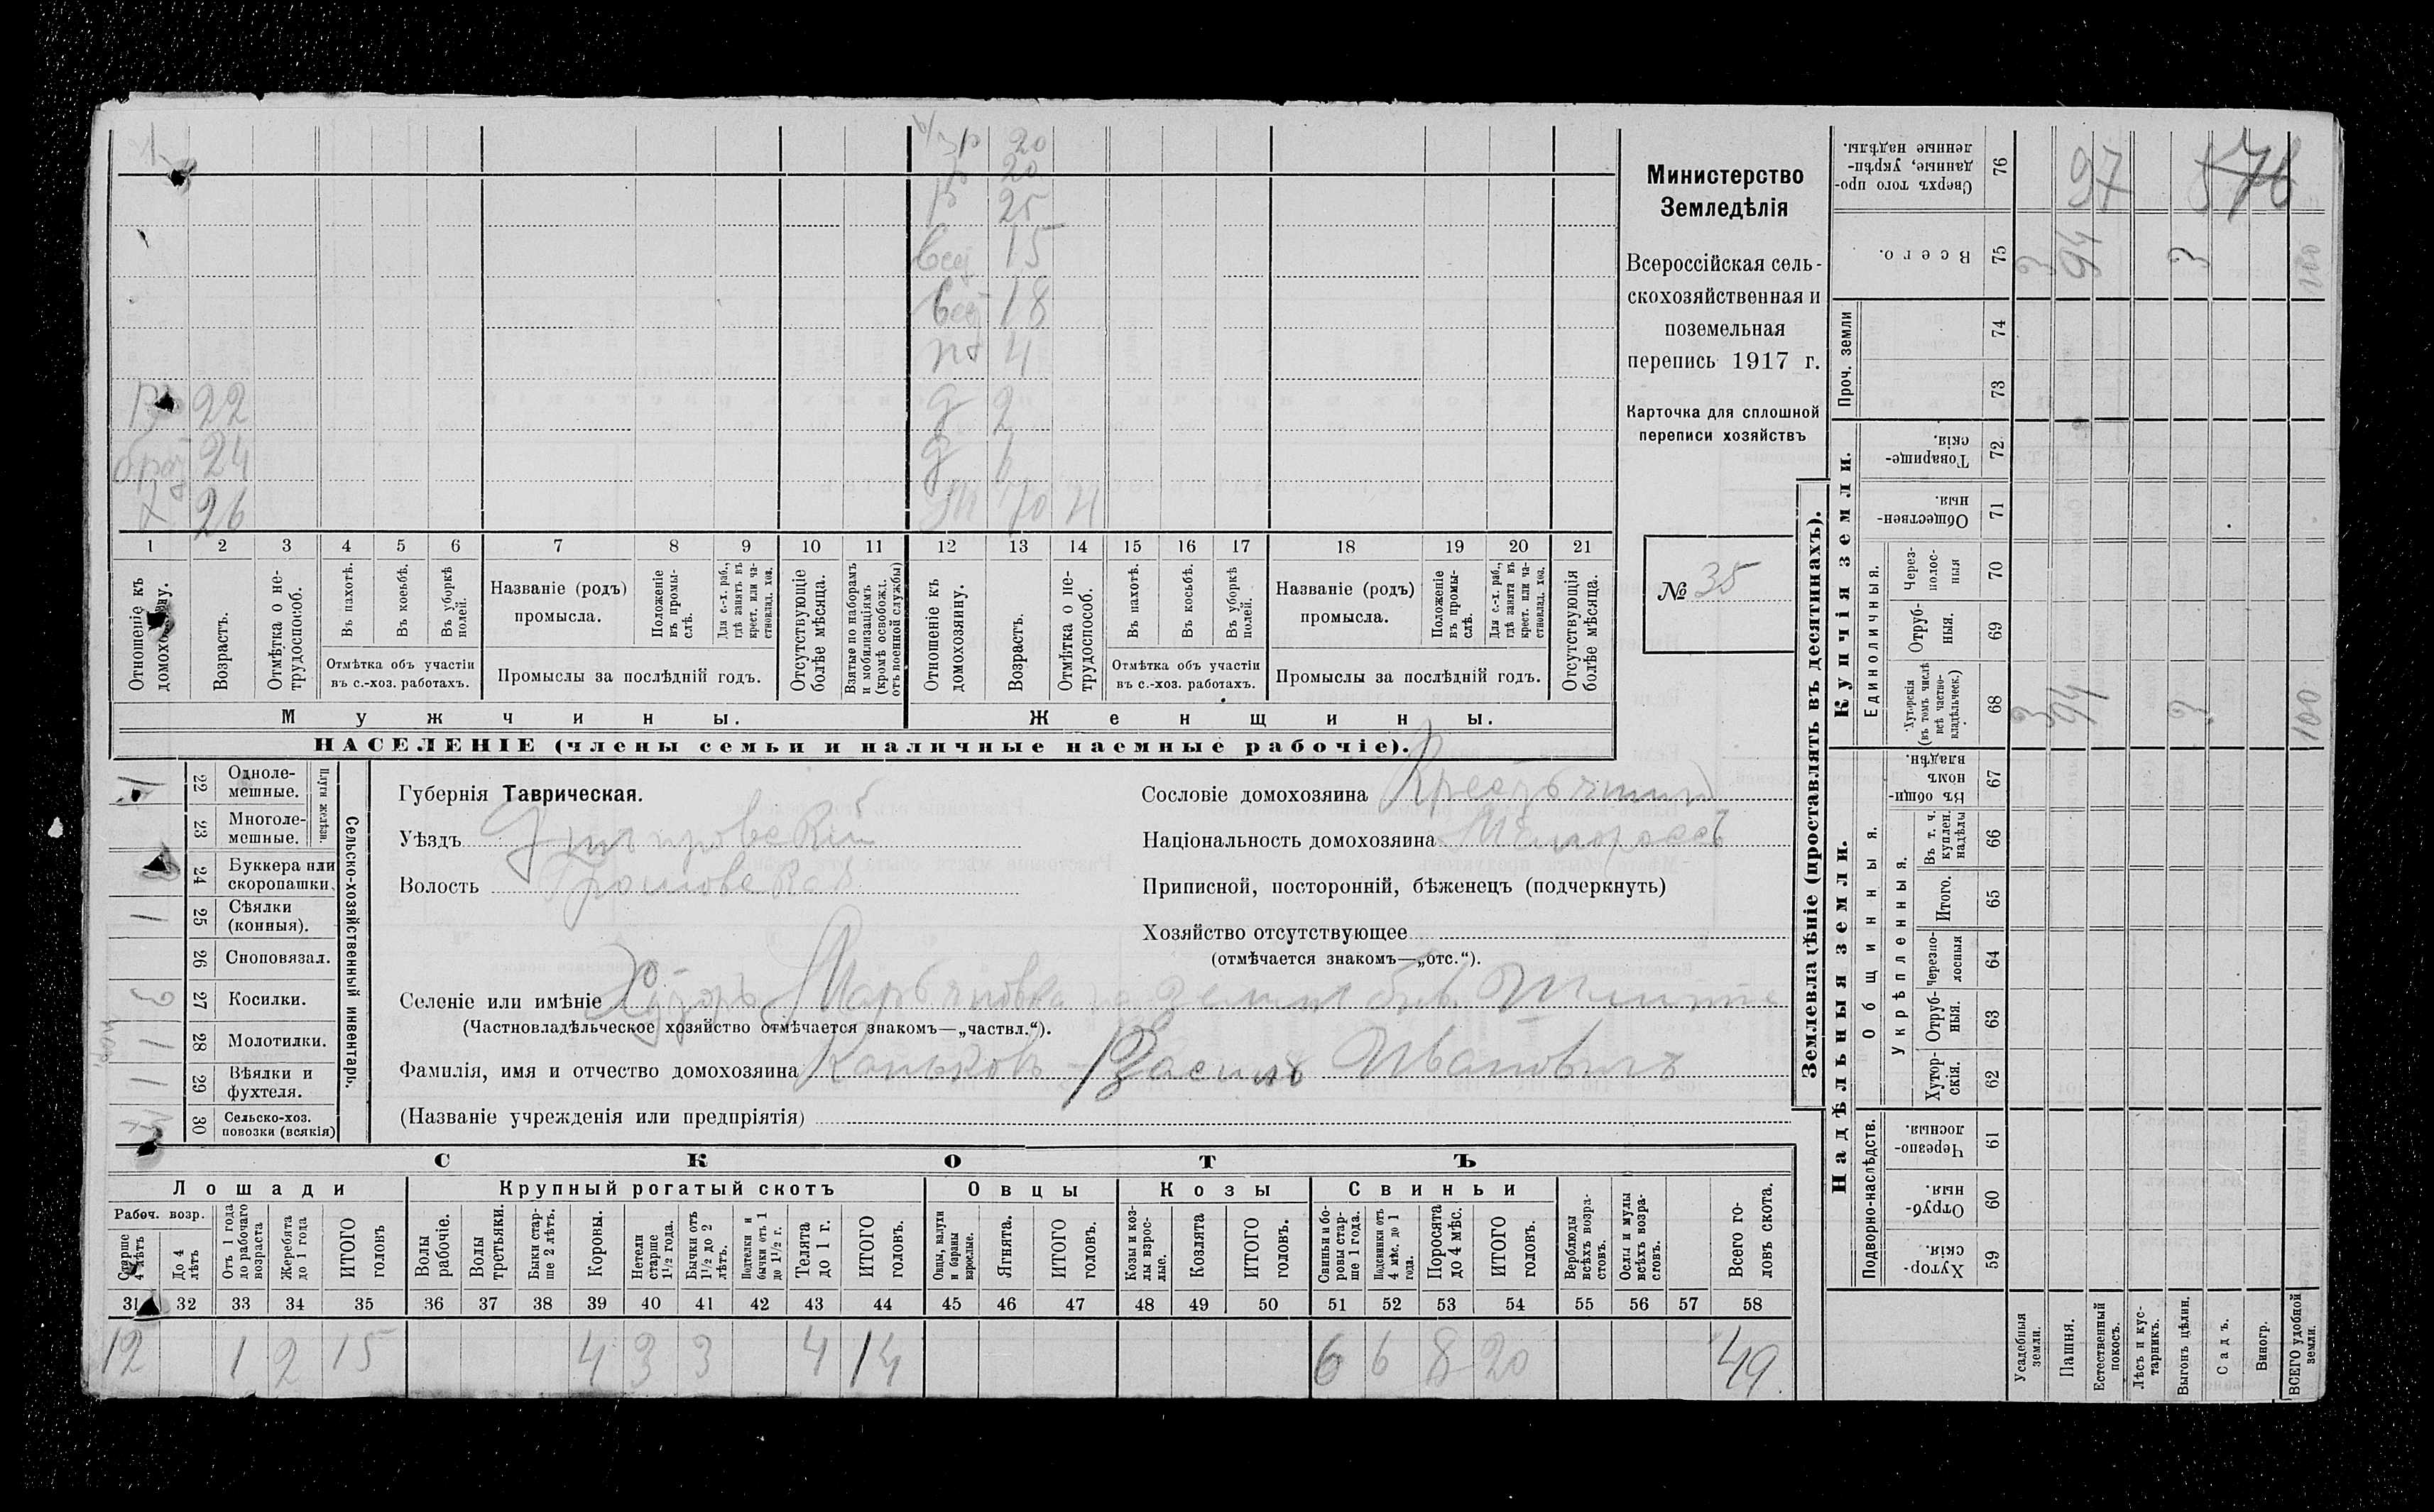 б/р 20
р 20
р 25
15
18
4
22 д 2
24 д 1
26 М 70 Н
1 2 3 4 5 6 7 8 9 10 11 12 13 14 15 16 17 18 19 20 21
Отношеніе къ домохозяину.
Возрастъ.
Отмѣтка о не-трудоспособ.
Въ пахотѣ.
Въ косьбѣ.
Въ уборкѣ полей.
Отмѣтка объ участіи
въ с.-хоз. работахъ.
Названіе (родъ)
промысла.
Положеніе въ промы-слѣ.
Для с.-х. раб., гдѣ занятъ въ крест. или ча-стновлад. хоз.
Промыслы за послѣдній годъ.
Отсутствующіе болѣе мѣсяца.
Взятые по наборамъ и мобилизаціямъ (кромѣ освобожд. отъ военной службы)
Отношеніе къ домохозяину.
Возрастъ.
Отмѣтка о не-трудоспособ.
Въ пахотѣ.
Въ косьбѣ.
Въ уборкѣ полей.
Отмѣтка объ участіи
въ с.-хоз. работахъ.
Названіе (родъ)
промысла.
Положеніе въ промы-слѣ.
Для с.-х. раб., гдѣ занята въ крест. или ча-стновлад. хоз.
Промыслы за послѣдній годъ.
Отсутствующія болѣе мѣсяца.
Мужчины. Женщины.
НАСЕЛЕНІЕ (члены семьи и наличные наемные рабочіе).
Министерство
Земледѣлія
Всероссійская сель-
скохозяйственная и
поземельная
перепись 1917 г.
Карточка для сплошной
переписи хозяйствъ
№ 35
22 Одноле-мешные.
23 Многоле-мешные.
Плуги желѣзн.
24 Буккера или скоропашки.
1 25 Сѣялки (конныя).
26 Сноповязал.
3 27 Косилки.
1 28 Молотилки.
1 29 Вѣялки и фухтеля.
30 Сельско-хоз. повозки (всякія)
Сельско-хозяйственный инвентарь.
Губернія Таврическая.
Уѣздъ Днѣпровскій
Волость Громовская
Сословіе домохозяина Крестьянинъ
Національность домохозяина Малороссъ
Приписной, посторонній, бѣженецъ (подчеркнуть)
Хозяйство отсутствующее
(отмѣчается знакомъ—„отс.“).
Селеніе или имѣніе Хуторъ Марьяновка на земли быв.
(Частновладѣльческое хозяйство отмѣчается знакомъ—„частвл.“).
Фамилія, имя и отчество домохозяина Коньковъ Василь Ивановичъ
(Названіе учрежденія или предпріятія)
СКОТЪ
Лошади Крупный рогатый скотъ Овцы Козы Свиньи
Рабоч. возр.
Старше 4 лѣтъ
До 4 лѣтъ
Отъ 1 года до рабочаго возраста
Жеребята до 1 года
ИТОГО головъ
Волы рабочіе.
Волы третьяки.
Быки стар-ше 2 лѣтъ.
Коровы.
Нетели старше 1½ года.
Бычки отъ 1½ до 2 лѣтъ.
Подтелки и бычки отъ 1 до 1½ г.
Телята до 1 г.
ИТОГО головъ.
Овцы, валухи и бараны взрослые.
Ягнята.
ИТОГО головъ.
Козы и коз-лы взрос-лые.
Козлята
ИТОГО головъ.
Свиньи и бо-ровы стар-ше 1 года.
Подсвинки отъ 4 мѣс. до 1 года.
Поросята до 4 мѣс.
ИТОГО головъ.
Верблюды всѣхъ возра-стовъ.
Ослы и мулы всѣхъ возра-стовъ.
Всего го-ловъ скота.
31 32 33 34 35 36 37 38 39 40 41 42 43 44 45 46 47 48 49 50 51 52 53 54 55 56 57 58
12 1 2 15 4 3 3 4 14 6 6 8 20 49
Землевладѣніе (проставлять въ десятинахъ).
Купчія земли.
Надѣльныя земли.
Сверхъ того про-данные, укрѣп-ленные надѣлы. 76 97 576
Всего. 75 3 94 3 100
Проч. земли 74
73
Товарище-скія. 72
Обществен-ныя. 71
Единоличныя.
Через-полос-ныя 70
Отруб-ныя. 69
Хуторскія (въ томъ числѣ всѣ частно-владѣльческ.) 68 3 94 3 100
Общинныя.
Въ общин-номъ владѣн. 67
Укрѣпленныя.
Въ т. ч. куплен. надѣлы 66
Итого. 65
Черезпо-лосныя 64
Отруб-ныя. 63
Хутор-скія. 62
Подворно-наслѣдств.
Черезпо-лосныя. 61
Отруб-ныя. 60
Хутор-скія. 59
Усадебныя земли.
Пашня.
Естественный покосъ.
Лѣсъ и кус-тарникъ.
Выгонъ цѣлин.
Садъ.
Виногр.
ВСЕГО удобной земли.